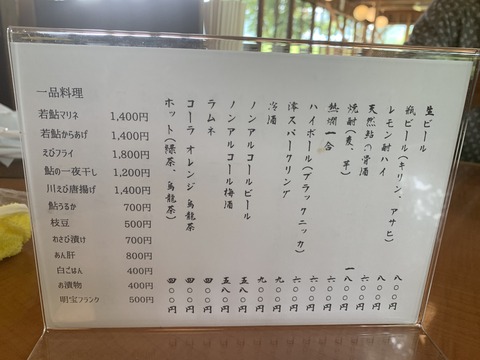 一品料理
若鮎マリネ 1,400円
若鮎からあげ 1,400円
えびフライ 1,800円
鮎の一夜干し 1,200円
川えび唐揚げ 1,400円
鮎うるか 700円
枝豆 500円
わさび漬け 700円
あん肝 800円
白ごはん 400円
お漬物 400円
明宝フランク 500円
生ビール 八〇〇円
瓶ビール(キリン、アサヒ) 八〇〇円
レモン酎ハイ 六〇〇円
天然鮎の骨酒 一八〇〇円
焼酎(麦、芋) 六〇〇円
熱燗一合 六〇〇円
ハイボール(ブラックニッカ) 六〇〇円
澪スパークリング 九〇〇円
冷酒 九〇〇円
ノンアルコールビール 五八〇円
ノンアルコール梅酒 五八〇円
ラムネ 四〇〇円
コーラ オレンジ 烏龍茶 四〇〇円
ホット(緑茶、烏龍茶) 四〇〇円